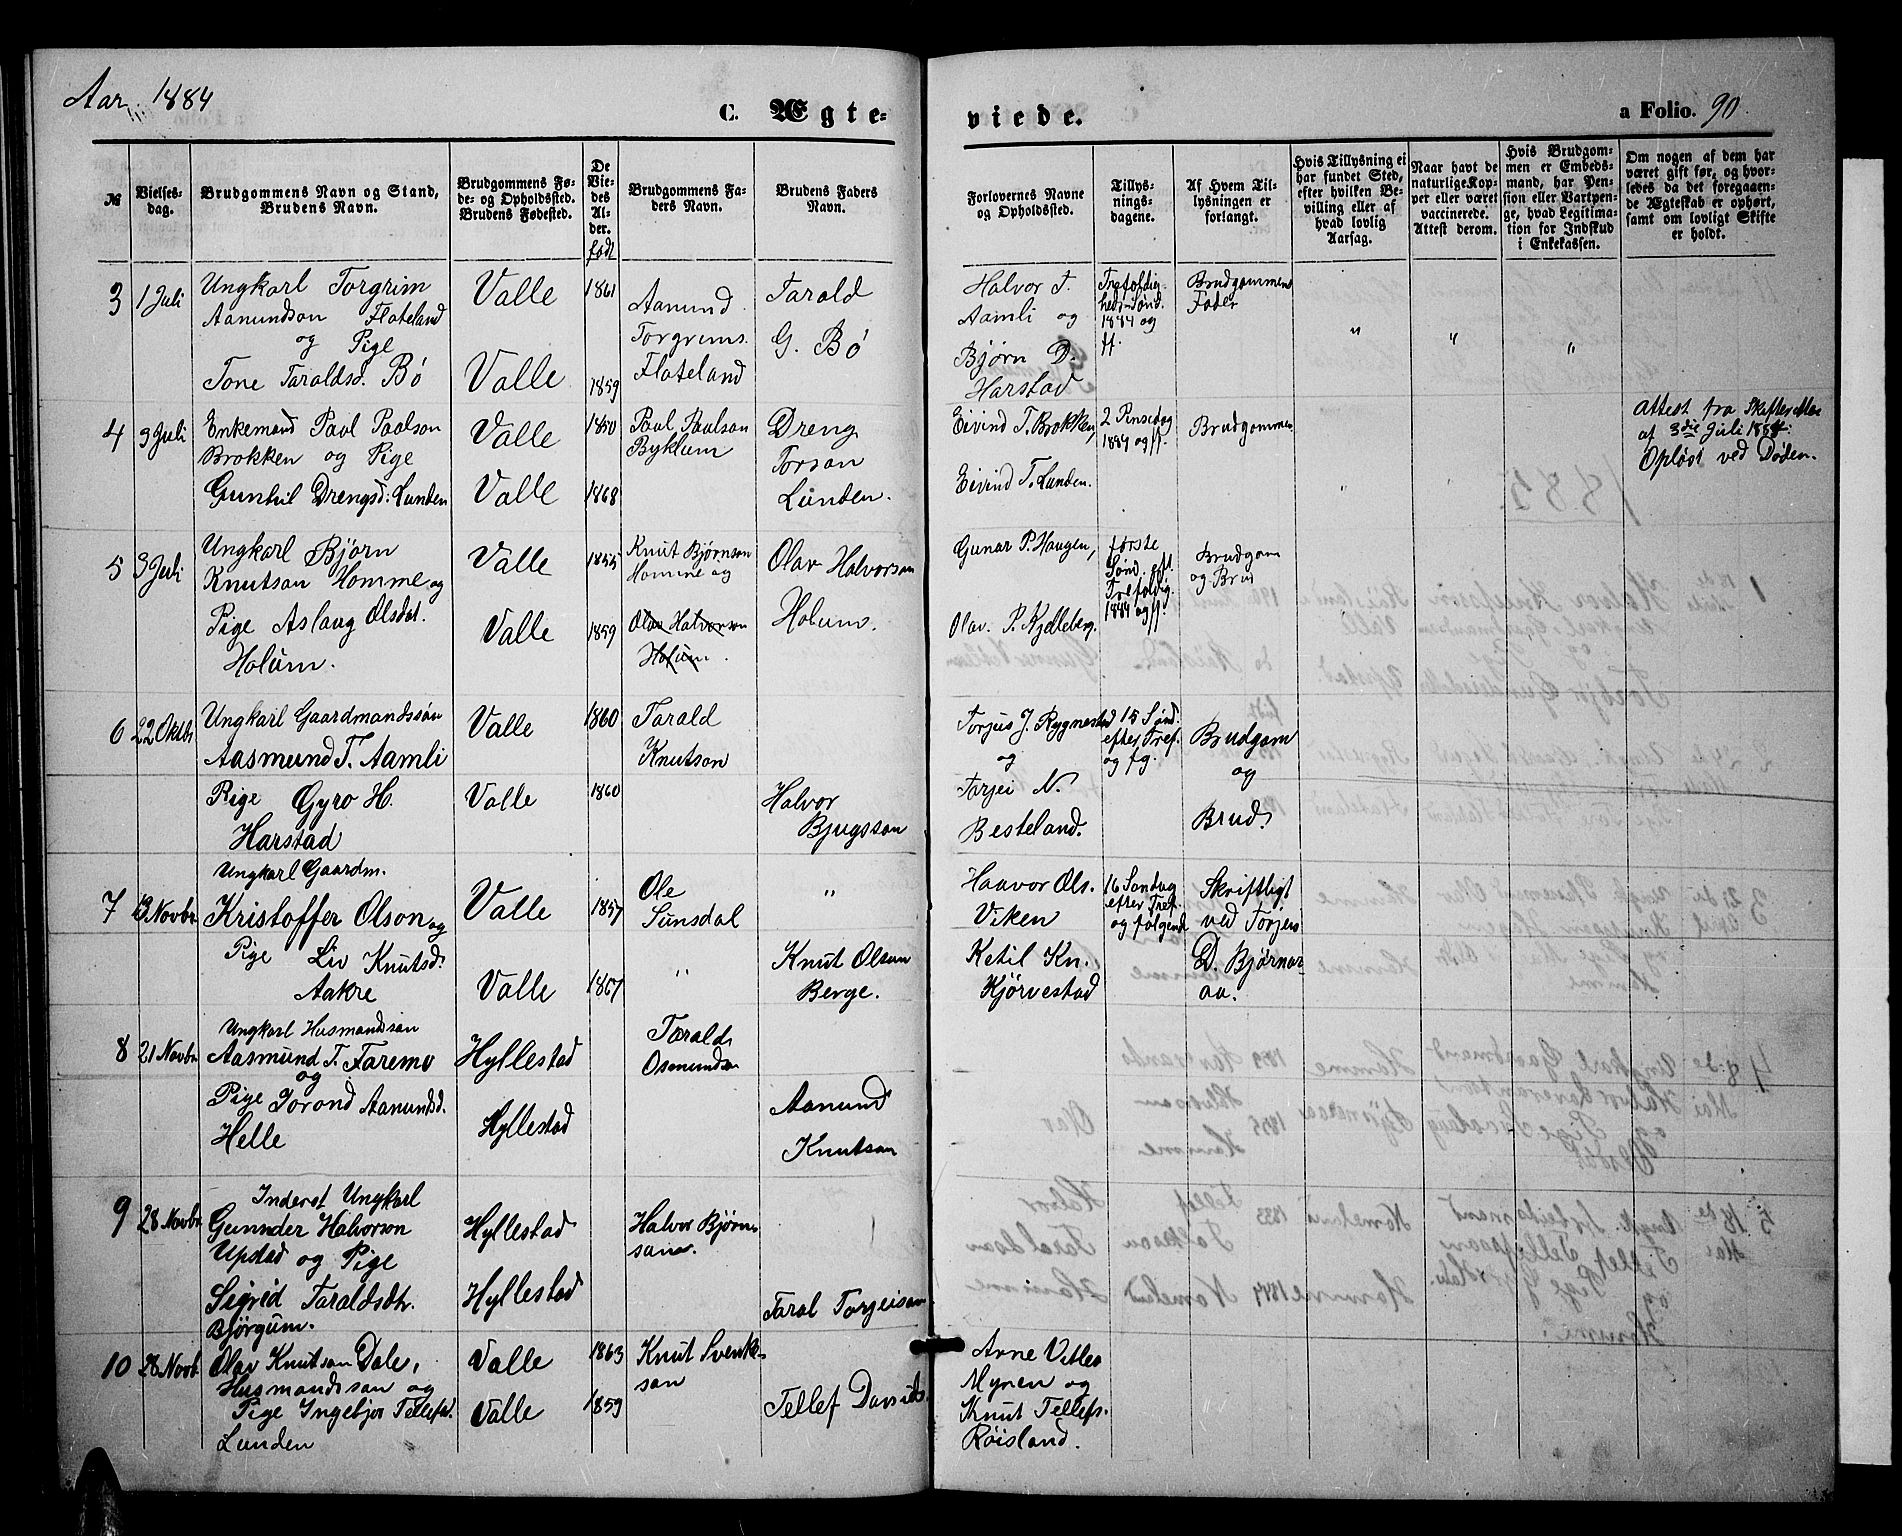 Aar 1884
C. Ægte-
viede.
a Folio. 90.
№
Vielses-
dag.
Brudgommens Navn og Stand,
Brudens Navn.
Brudgommens Fø-
de- og Opholdssted.
Brudens Fødested.
De
Vie-
des
Al-
der.
født
Brudgommens Fa-
ders Navn.
Brudens Faders
Navn.
Forlovernes Navne
og Opholdssted.
Tillys-
nings-
dagene.
Af Hvem Til-
lysningen er
forlangt.
Hvis Tillysning ei
har fundet Sted,
efter hvilken Be-
villing eller af
hvad lovlig
Aarsag.
Naar havt de
naturlige Kop-
per eller været
vaccinerede.
Attest derom.
Hvis Brudgom-
men er Embeds-
mand, har Pen-
sion eller Vartpen-
ge, hvad Legitima-
tion for Indskud
i Enkekassen.
Om nogen af dem har
været gift før, og hvor-
ledes da det foregaaen-
de Ægteskab er ophørt,
samt om lovligt Skifte
er holdt.
3 1 Juli
Ungkarl Torgrim
Aanundson Flateland
og Pige
Tone Taraldsd. Bó
Valle
Valle
1861
1859
Aanund
Torgrims.
Flateland
Tarald
G. Bó
Halvor T.
Aamli og
Bjørn D.
Harstad
Trefoldig-
heds-Sønd.
1884 og
ff.
Brudgommens
Fader
"
"
"
4 3 Juli
Enkemand Paal Paalson
Brokken og Pige
Guntvil Drengsd: Lunden
Valle
Valle
1850
1868
Paal Paalson
Byklum
Dreng
Torson
Lunden.
Eivind T. Brokken,
Eivind T. Lunden.
2 Pinsedag
1884 og ff.
Brudgommen
"
"
Attest fra Skifteretten
af 3die Juli 1884:
Opløst ved Døden.
5 3 Juli
Ungkarl Bjørn
Knutson Homme og
Pige Aslaug Olsdat.
Holum.
Valle
Valle
1855
1859
Knut Bjørnson
Homme og
Olav Halvorson
Holum.
Olav Halvorson
Holum.
Gunar P. Haugen,
Olav. P. Kjelleberg.
første
Sønd. eft.
Trefoldig.
1884 og ff.
Brudgom
og Brud
6 22 Oktbr
Ungkarl Gaardmandssøn
Aasmund T. Aamli
Pige Gyro H.
Harstad
Valle
Valle
1860
1860
Tarald
Knutson
Halvor
Bjugsson
Torjus J. Rygnestad
og
Torjei N.
Besteland.
15 Sønd.
efter Tref.
og fg.
Brudgom
og
Brud.
7 13 Novbr
Ungkarl Gaardm.
Kristoffer Olson og
Pige Liv Knutsd.
Aakre
Valle
Valle
1857
1867
Ole
Sunsdal
"
"
Knut Olson
Berge.
Haavor Ols.
Viken
Ketil Kn.
Kjörvestad
16 Søndag
efter Tref.
og følgende
Skriftligt
ved Torjus
D. Bjørnar-
aa.
8 21 Novbr
Ungkarl Husmandsøn
Aasmund T. Faremo
og
Pige Jorond Aanundsd.
Helle
Hyllestad
Hyllestad
Tarald
Osmundson
Aanund
Knutson
9 28 Novbr
Inderst Ungkarl
Gunnder Halvorson
Upstad og Pige
Sigrid Taraldsdtr.
Bjørgum.
Hyllestad
Hyllestad
Halvor Bjørn-
son.
Taral Torjeison
10 28 Novb.
Olav Knutson Dale,
Husmandsson og
Pige Ingebjor Tellefsd.
Lunden
Valle
Valle
1863
1859
Knut Svenke-
son
Tellef Davids.
Arne Vitles
Myren og
Knut Tellefs.
Røisland.